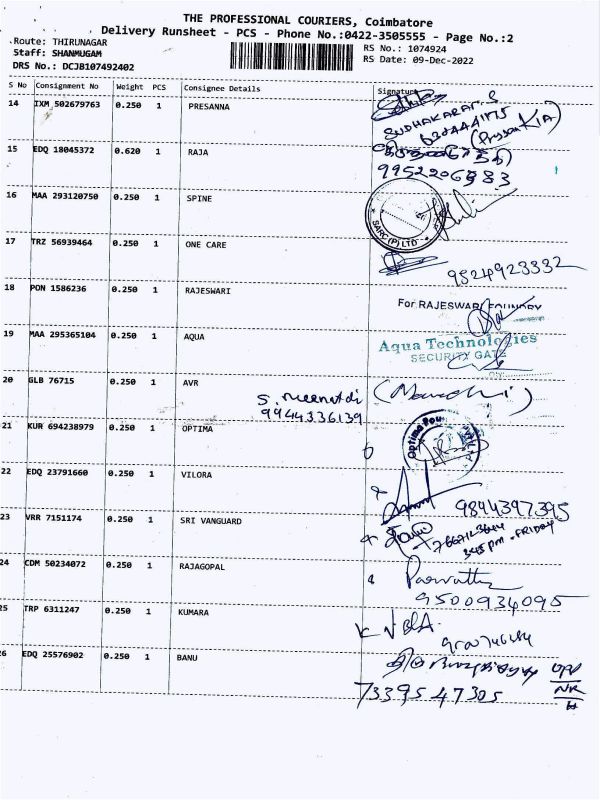 THE PROFESSIONAL COURIERS, Coimbatore
Delivery Runsheet - PCS - Phone No.:0422-3505555 - Page No.:2
Route: THIRUNAGAR
Staff: SHANMUGAM
DRS No.: DCJB107492402
RS No.: 1074924
RS Date: 09-Dec-2022
S No Consignment No Weight PCS Consignee Details Signature
14 IXM 502679763 0.250 1 PRESANNA
SUDHAKARAN S
15 EDQ 18045372 0.620 1 RAJA
9952206983
16 MAA 293120750 0.250 1 SPINE
SARC (P) LTD
17 TRZ 56939464 0.250 1 ONE CARE
9524923332
18 PON 1586236 0.250 1 RAJESWARI
For RAJESWARI FOUNDRY
19 MAA 295365104 0.250 1 AQUA
Aqua Technologies
SECURITY GATE
20 GLB 76715 0.250 1 AVR
S. Meenatdi
9944336139
21 KUR 694238979 0.250 1 OPTIMA
Optima
22 EDQ 23791660 0.250 1 VILORA
9894397395
23 VRR 7151174 0.250 1 SRI VANGUARD
3.45 pm - FRIDAY
24 CDM 50234072 0.250 1 RAJAGOPAL
9500934095
25 TRP 6311247 0.250 1 KUMARA
26 EDQ 25576902 0.250 1 BANU
7339547305